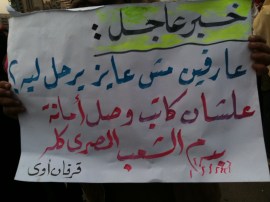 خبر عاجل:
عارفين مش عايز يرحل ليه؟
علشان كاتب وصل أمانة
بدم الشعب المصرى كله
قرفان أوى